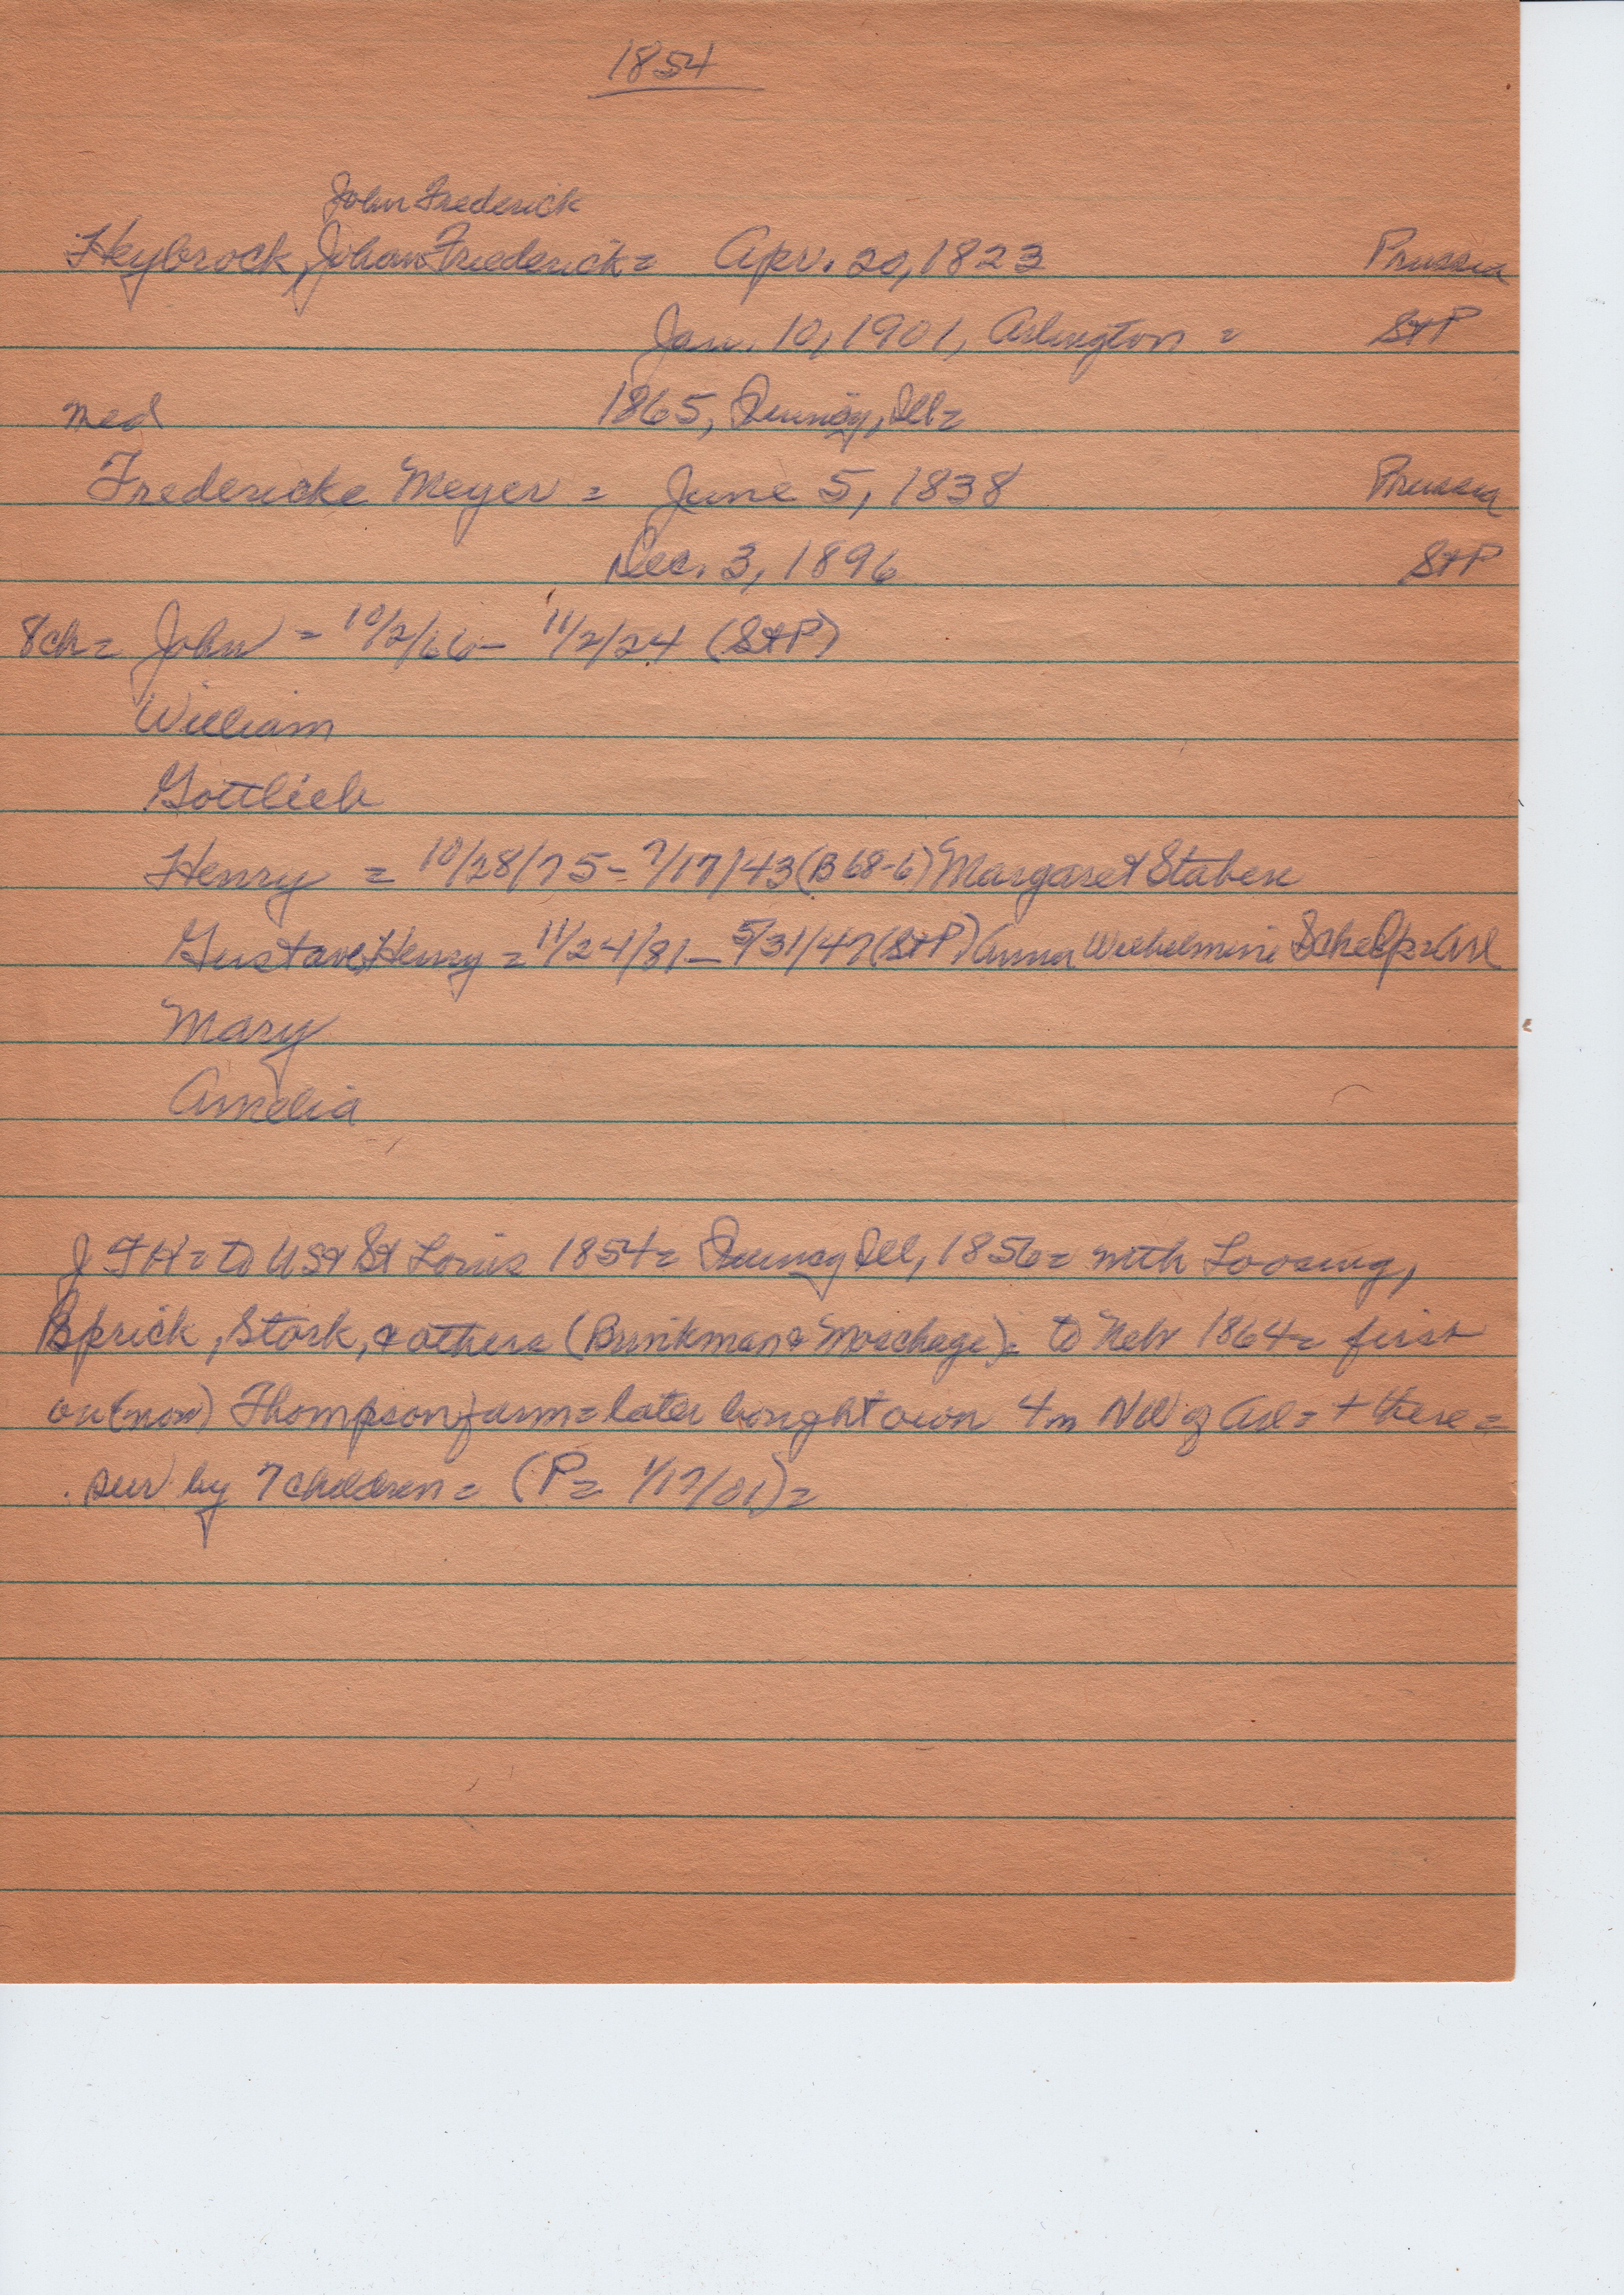 1854
John Frederick
Heybrock, Johan Friederick = Apr. 20, 1823 Prussia
Jan. 10, 1901, Arlington = StP
med 1865, Quincy, Ill =
Fredericke Meyer = June 5, 1838 Prussia
Dec. 3, 1896 StP
8ch = John = 10/2/66 - 11/2/24 (StP)
William
Gottlieb
Henry = 10/28/75 - 7/17/43 (B 68-6) Margaret Staben
Gustave Henry = 11/24/81 - 5/31/47 (StP) Anna Wilhelmine Schelp = Arl
Mary
Amelia
J F H = to US & St Louis 1854 = Quincy Ill, 1856 = with Loosing,
Sprick, Stork, & others (Brinkman & Moschage) = to Neb 1864 = first
on (now) Thompson farm = later bought own 4m NW of Arl = + there =
sur by 7 children = (P = 1/17/01) =